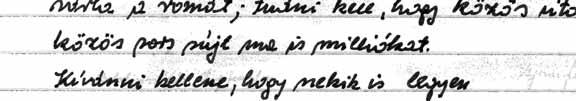 várba a romát; tudni kell, hogy közös úto
közös sors sújt ma is milliókat.
Kívánni kellene, hogy nekik is legyen